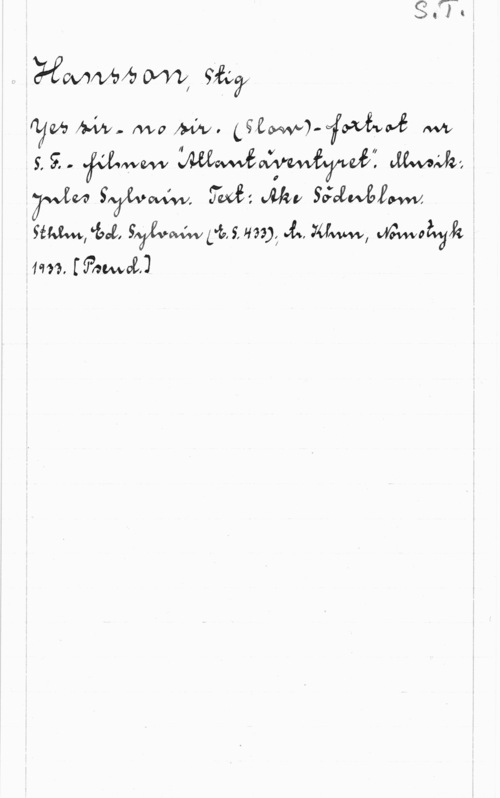 S.T.
Hansson, Stig
Yes sir - no sir. (Slow)-foxtrot ur
S. F. - filmen "Atlantäventyret". Musik:
Jules Sylvain. Text: Åke Söderblom.
Sthlm, Ed. Sylvain (E. S. 433), tr. Khvm, Nornotryk
1933. [Pseud.]